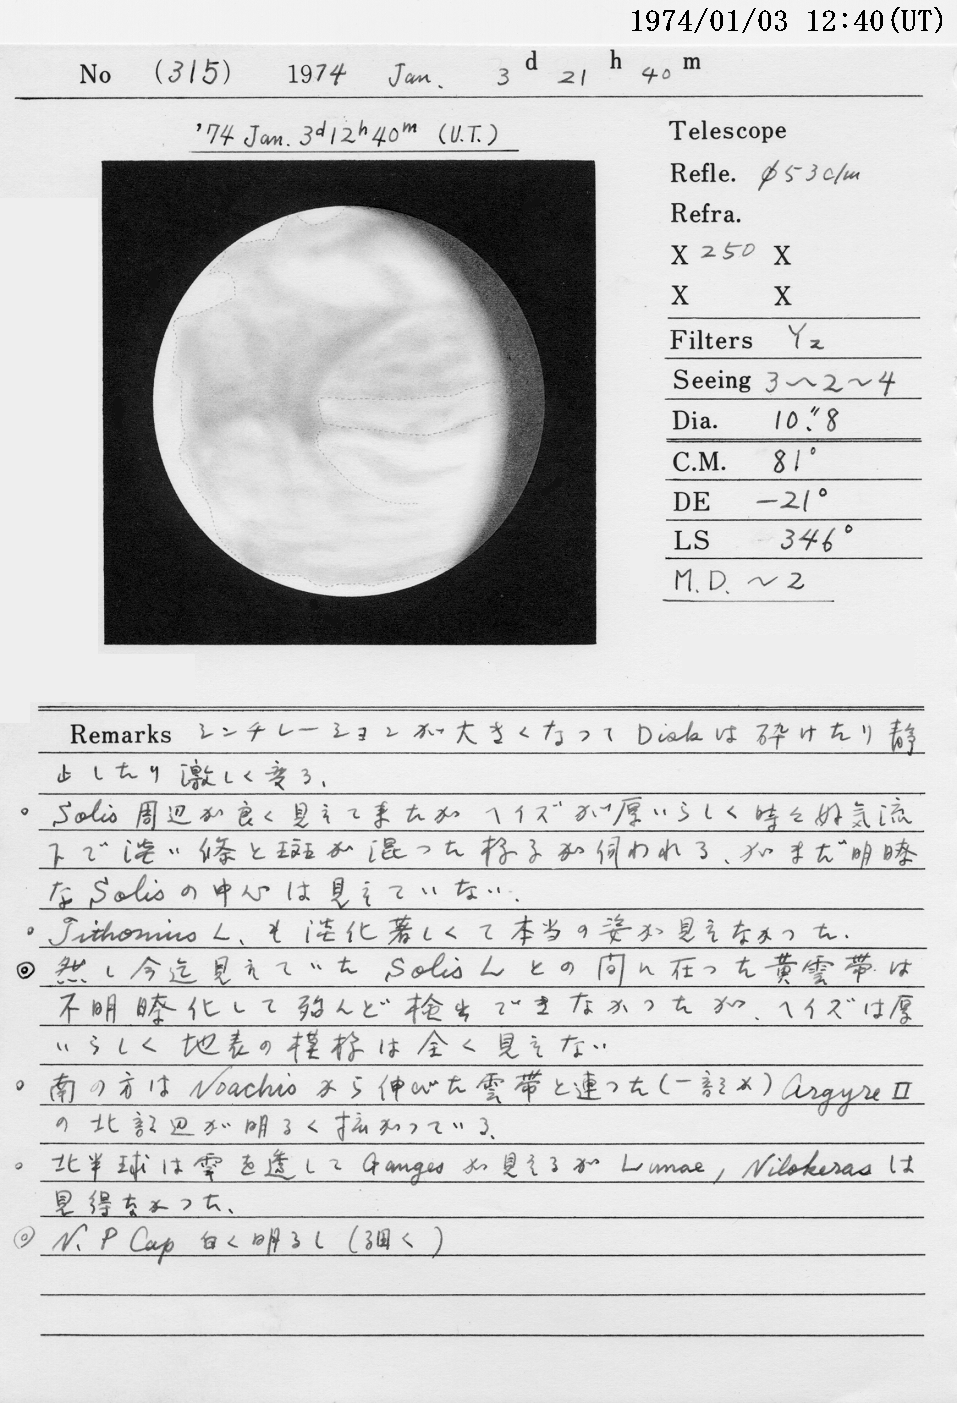 1974/01/03 12:40(UT)
No (315) 1974 Jan. 3 d 21 h 40 m
'74 Jan. 3d12h40m (U.T.)
Telescope
Refle. φ53c/m
Refra.
X 250 X
X X
Filters Y2
Seeing 3〜2〜4
Dia. 10".8
C.M. 81°
DE −21°
LS 346°
M.D. 〜2
Remarks シンチレーションが大きくなって Diskは砕けたり静
止したり激しく変る.
○ Solis 周辺が良く見えて来たがヘイズが厚いらしく時々好気流
下で淡い條と斑が混った様子が伺われる、がまだ明瞭
なSolisの中心は見えていない.
○ Tithonius L. も淡化著しくて本当の姿が見えなかった.
◎ 然し今迄見えていた Solis Lとの間に在った黄雲帯は
不明瞭化して殆んど検出できなかったが、ヘイズは厚
いらしく地表の模様は全く見えない
○ 南の方は Noachisから伸びた雲帯と連った(一部か) Argyre II
の北部辺が明るく拡がっている.
○ 北半球は雲を透して Gangesが見えるが Lunae, Nilokerasは
見得なかった.
◎ N. P Cap 白く明るし(細く)